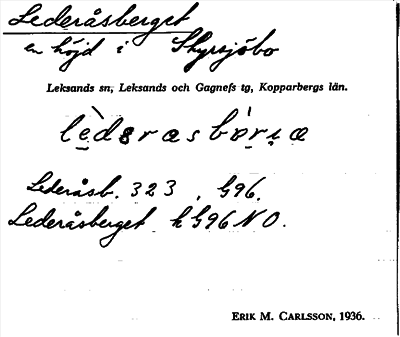 Lederåsberget
en höjd i Skyrsjöbo
Leksands sn, Leksands och Gagnefs tg, Kopparbergs län.
Lederåsb. 323, G96.
Lederåsberget h G96 NO.
ERIK M. CARLSSON, 1936.